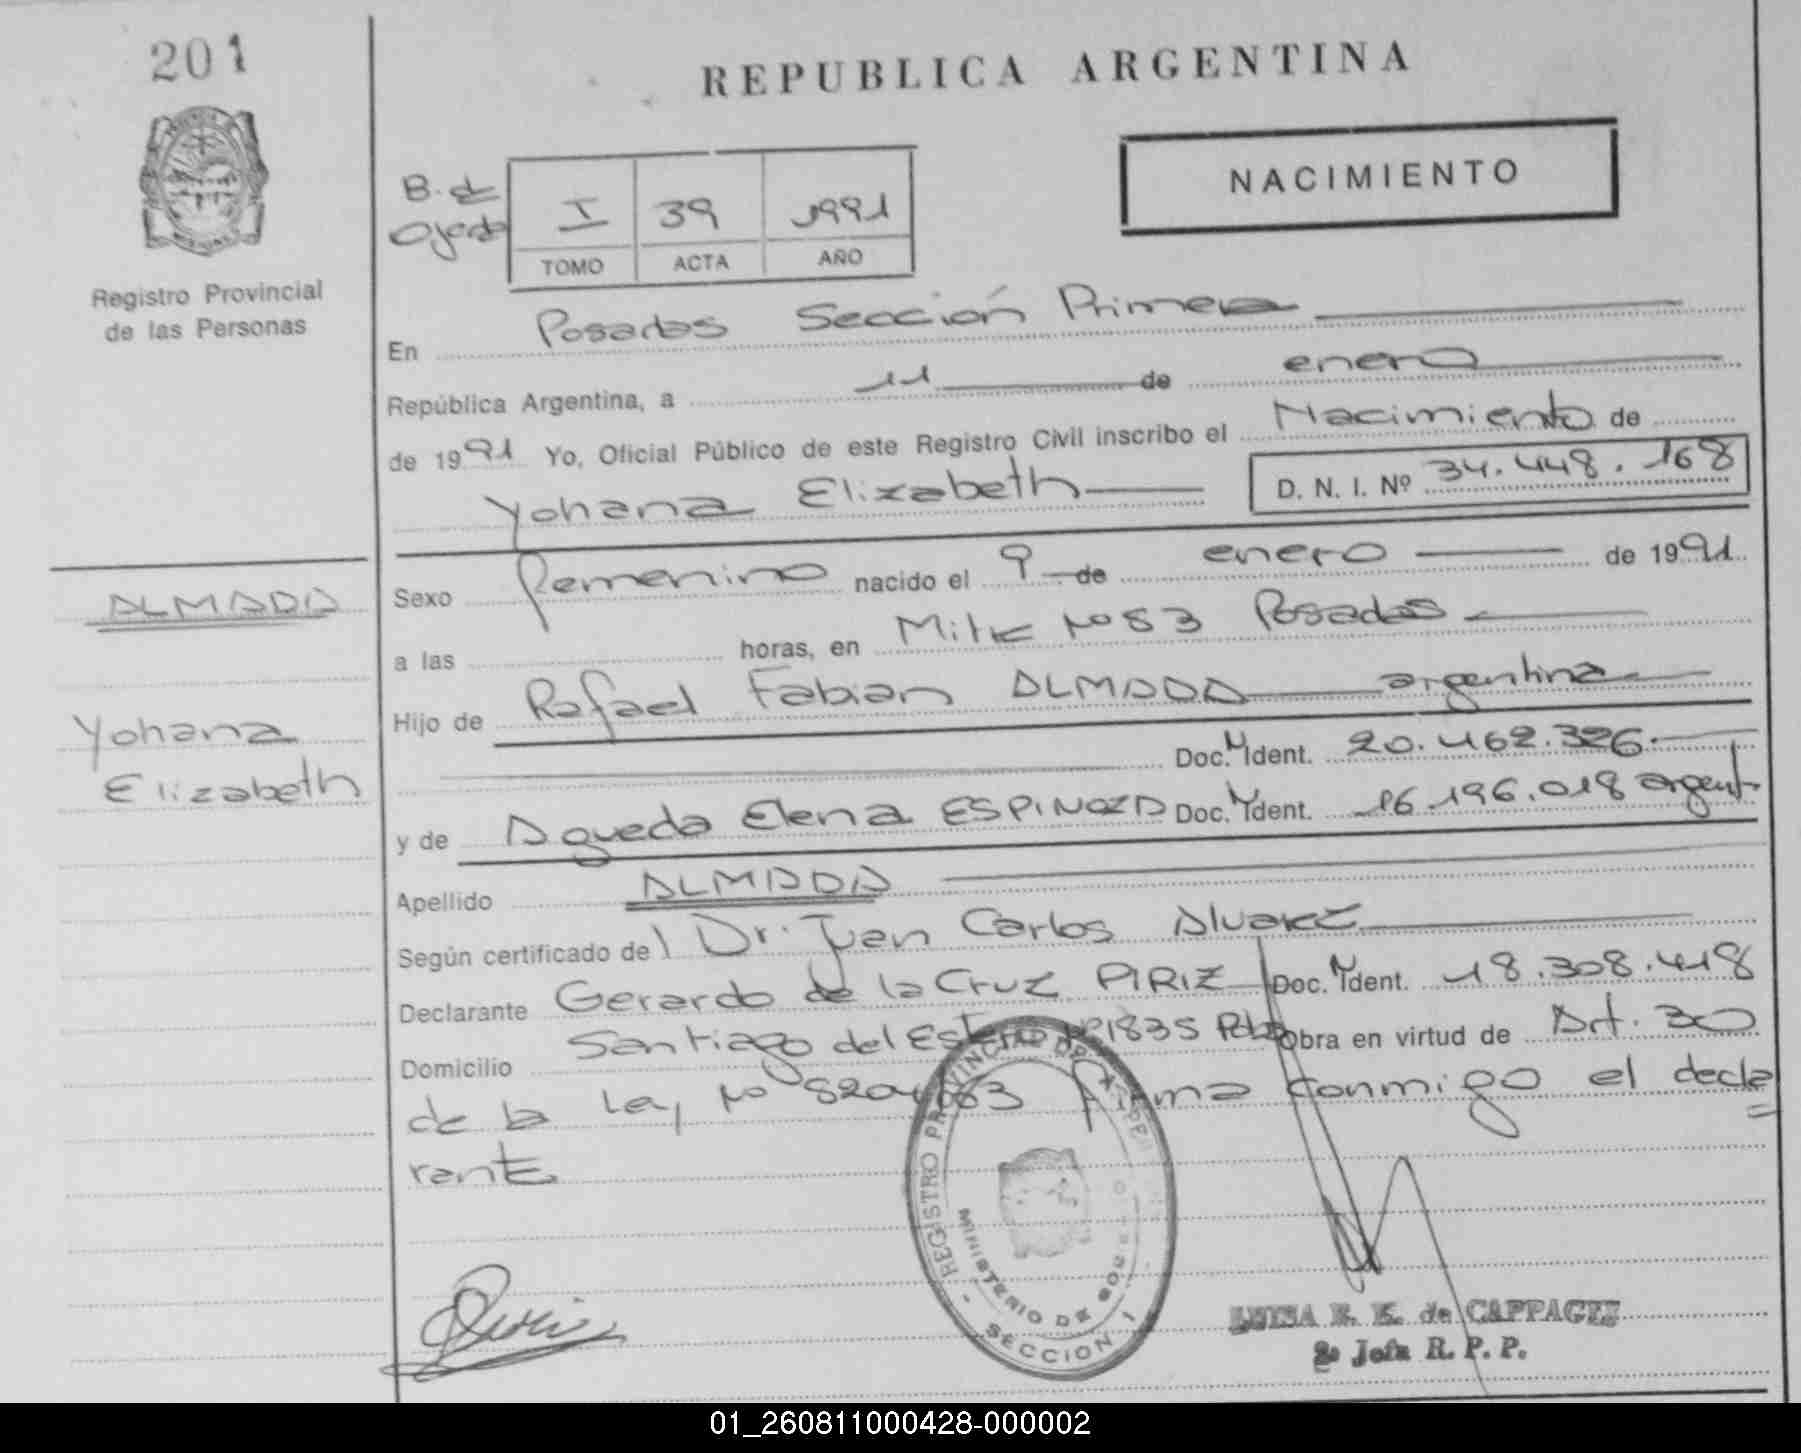 201
REPUBLICA ARGENTINA
NACIMIENTO
B. de
Ojeda
I 39 1991
TOMO ACTA AÑO
Registro Provincial
de las Personas
En Posadas Sección Primera
República Argentina, a 11 de enero
de 1991 Yo, Oficial Público de este Registro Civil inscribo el Nacimiento de
Yohana Elizabeth D. N. I. Nº 34.448.168
ALMADA
Yohana
Elizabeth
Sexo Femenino nacido el 9 de enero de 1991
a las horas, en Mitre Nº 83 Posadas
Hijo de Rafael Fabian ALMADA argentina
Doc. N Ident. 20.462.326.
y de Agueda Elena ESPINOZA Doc. N Ident. 16.196.018 argent.
Apellido ALMADA
Según certificado del Dr. Juan Carlos Alvarez
Declarante Gerardo de la Cruz PIRIZ Doc. N Ident. 18.308.418
Domicilio Santiago del Estero Nº 1835 Obra en virtud de Art. 30
de la Ley Nº firma conmigo el decla
rante
REGISTRO PROVINCIAL DE
MINISTERIO DE
SECCION I
LUISA E. K. de CAPPAGEZ
2º Jefa R. P. P.
01_260811000428-000002